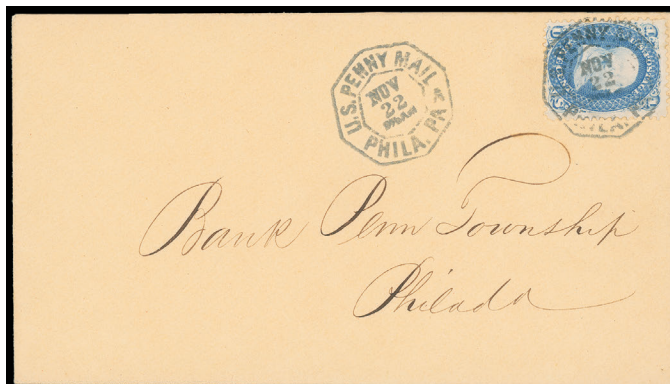 U.S. PENNY MAIL
NOV
22
PHILA. PA
PENNY
NOV
22
PHILA. P
Bank Penn Township
Philada